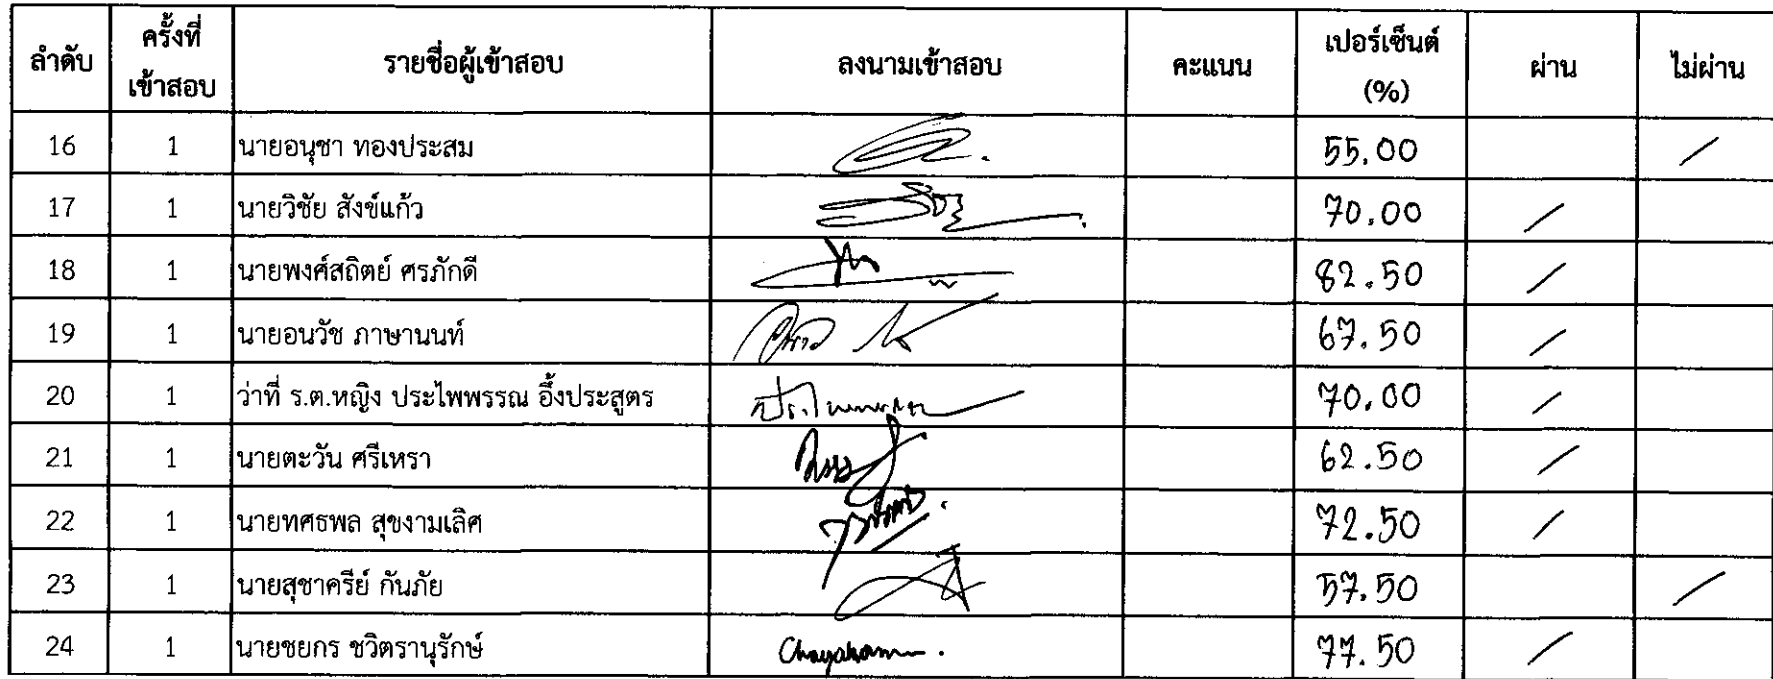 ลำดับ ครั้งที่เข้าสอบ รายชื่อผู้เข้าสอบ ลงนามเข้าสอบ คะแนน เปอร์เซ็นต์ (%) ผ่าน ไม่ผ่าน
16 1 นายอนุชา ทองประสม 55.00 /
17 1 นายวิชัย สังข์แก้ว 70.00 /
18 1 นายพงศ์สถิตย์ ศรภักดี 82.50 /
19 1 นายอนวัช ภาษานนท์ 67.50 /
20 1 ว่าที่ ร.ต.หญิง ประไพพรรณ อึ้งประสูตร 70.00 /
21 1 นายตะวัน ศรีเหรา 62.50 /
22 1 นายทศธพล สุขงามเลิศ 72.50 /
23 1 นายสุชาครีย์ กันภัย 57.50 /
24 1 นายชยกร ชวิตรานุรักษ์ 77.50 /